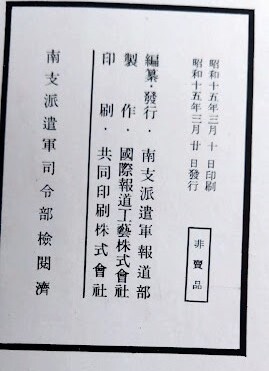 昭和十五年三月十日印刷
昭和十五年三月廿日發行
非賣品
編纂・發行・南支派遣軍報道部
製作・國際報道工藝株式會社
印刷・共同印刷株式會社
南支派遣軍司令部檢閲濟